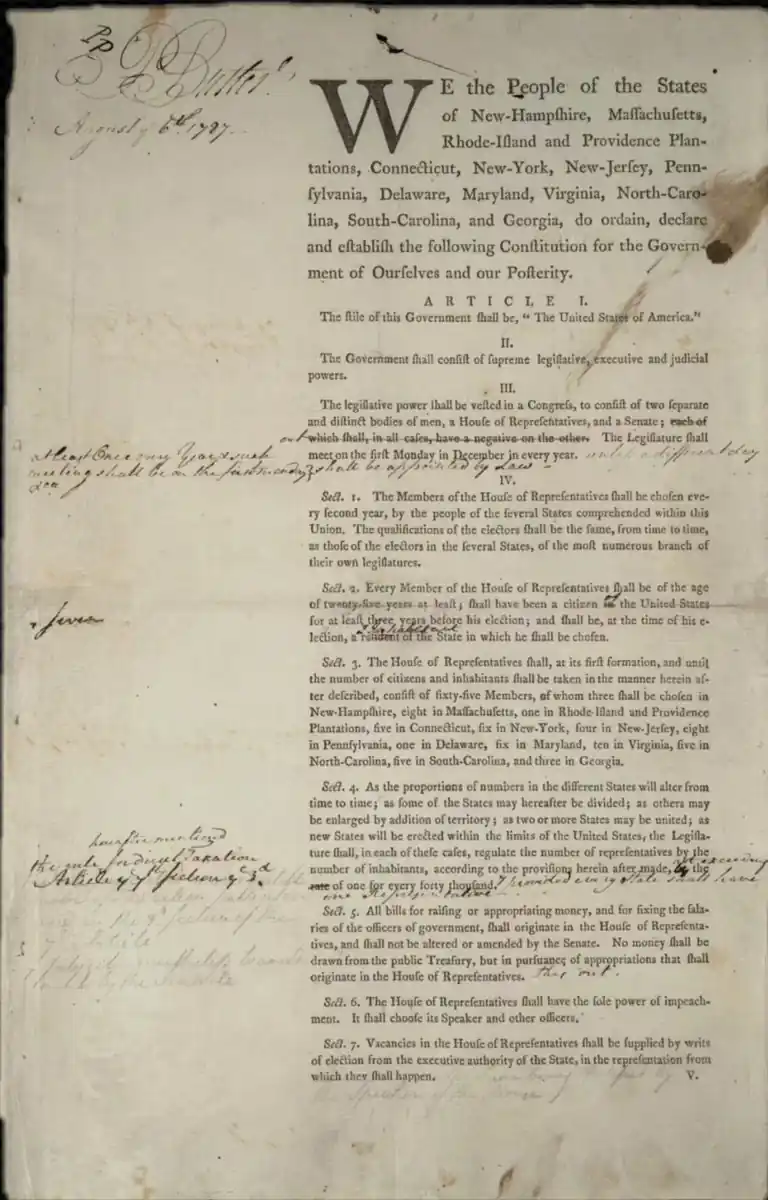 P. Butler
August y 6th. 1787.
WE the People of the States
of New-Hampſhire, Maſſachuſetts,
Rhode-Iſland and Providence Plan-
tations, Connecticut, New-York, New-Jerſey, Penn-
ſylvania, Delaware, Maryland, Virginia, North-Caro-
lina, South-Carolina, and Georgia, do ordain, declare
and eſtabliſh the following Conſtitution for the Govern-
ment of Ourſelves and our Poſterity.
ARTICLE I.
The ſtile of this Government ſhall be, “ The United States of America.”
II.
The Government ſhall conſiſt of ſupreme legiſlative, executive and judicial
powers.
III.
The legiſlative power ſhall be veſted in a Congreſs, to conſiſt of two ſeparate
and diſtinct bodies of men, a Houſe of Repreſentatives, and a Senate; each of
out which ſhall, in all caſes, have a negative on the other. The Legiſlature ſhall
at least Once every Year & such
meet on the firſt Monday in December in every year. until a different day
meeting shall be on the first monday
shall be appointed by Law
IV.
Sect. 1. The Members of the Houſe of Repreſentatives ſhall be choſen eve-
ry ſecond year, by the people of the ſeveral States comprehended within this
Union. The qualifications of the electors ſhall be the ſame, from time to time,
as thoſe of the electors in the ſeveral States, of the moſt numerous branch of
their own legiſlatures.
Sect. 2. Every Member of the Houſe of Repreſentatives ſhall be of the age
of twenty-five years at leaſt; ſhall have been a citizen the United States
seven
for at leaſt three years before his election; and ſhall be, at the time of his e-
Inhabitant
lection, a reſident of the State in which he ſhall be choſen.
Sect. 3. The Houſe of Repreſentatives ſhall, at its firſt formation, and until
the number of citizens and inhabitants ſhall be taken in the manner herein af-
ter deſcribed, conſiſt of ſixty-five Members, of whom three ſhall be choſen in
New-Hampſhire, eight in Maſſachuſetts, one in Rhode-Iſland and Providence
Plantations, five in Connecticut, ſix in New-York, four in New-Jerſey, eight
in Pennſylvania, one in Delaware, ſix in Maryland, ten in Virginia, five in
North-Carolina, five in South-Carolina, and three in Georgia.
Sect. 4. As the proportions of numbers in the different States will alter from
time to time; as ſome of the States may hereafter be divided; as others may
be enlarged by addition of territory; as two or more States may be united; as
new States will be erected within the limits of the United States, the Legiſla-
hereafter mentioned
ture ſhall, in each of theſe caſes, regulate the number of repreſentatives by the
the rule for direct Taxation
number of inhabitants, according to the proviſions herein after made, not exceeding the
Article y 7th section y 3d
rate of one for every forty thouſand. provided every State shall have
one Representative
Sect. 5. All bills for raiſing or appropriating money, and for fixing the ſala-
ries of the officers of government, ſhall originate in the Houſe of Repreſenta-
tives, and ſhall not be altered or amended by the Senate. No money ſhall be
drawn from the public Treaſury, but in purſuance of appropriations that ſhall
originate in the Houſe of Repreſentatives. This out.
Sect. 6. The Houſe of Repreſentatives ſhall have the ſole power of impeach-
ment. It ſhall chooſe its Speaker and other officers.
Sect. 7. Vacancies in the Houſe of Repreſentatives ſhall be ſupplied by writs
of election from the executive authority of the State, in the repreſentation from
which they ſhall happen. V.